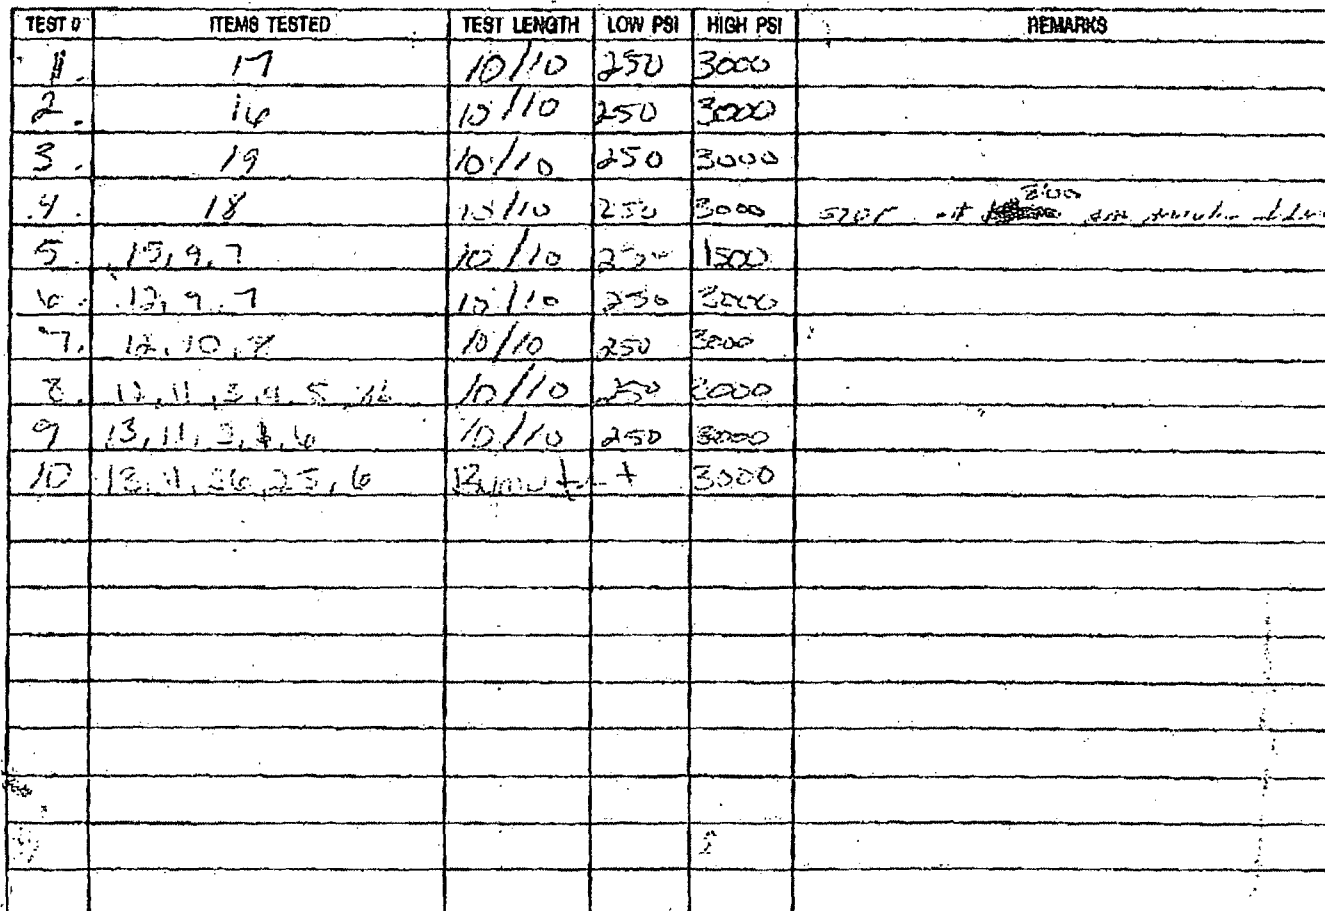 TEST # ITEMS TESTED TEST LENGTH LOW PSI HIGH PSI REMARKS
1. 17 10/10 250 3000
2. 16 10/10 250 3000
3. 19 10/10 250 3000
4. 18 10/10 250 3000
5. 15, 9, 7 10/10 250 1500
6. 12, 9, 7 10/10 250 3000
7. 12, 10, 10/10 250 3000
8. 12, 11, 3, 4, 5, 10/10 250 3000
9 13, 11, 3, 4, 6 10/10 250 3000
10 13, 11, 26, 25, 6 3000